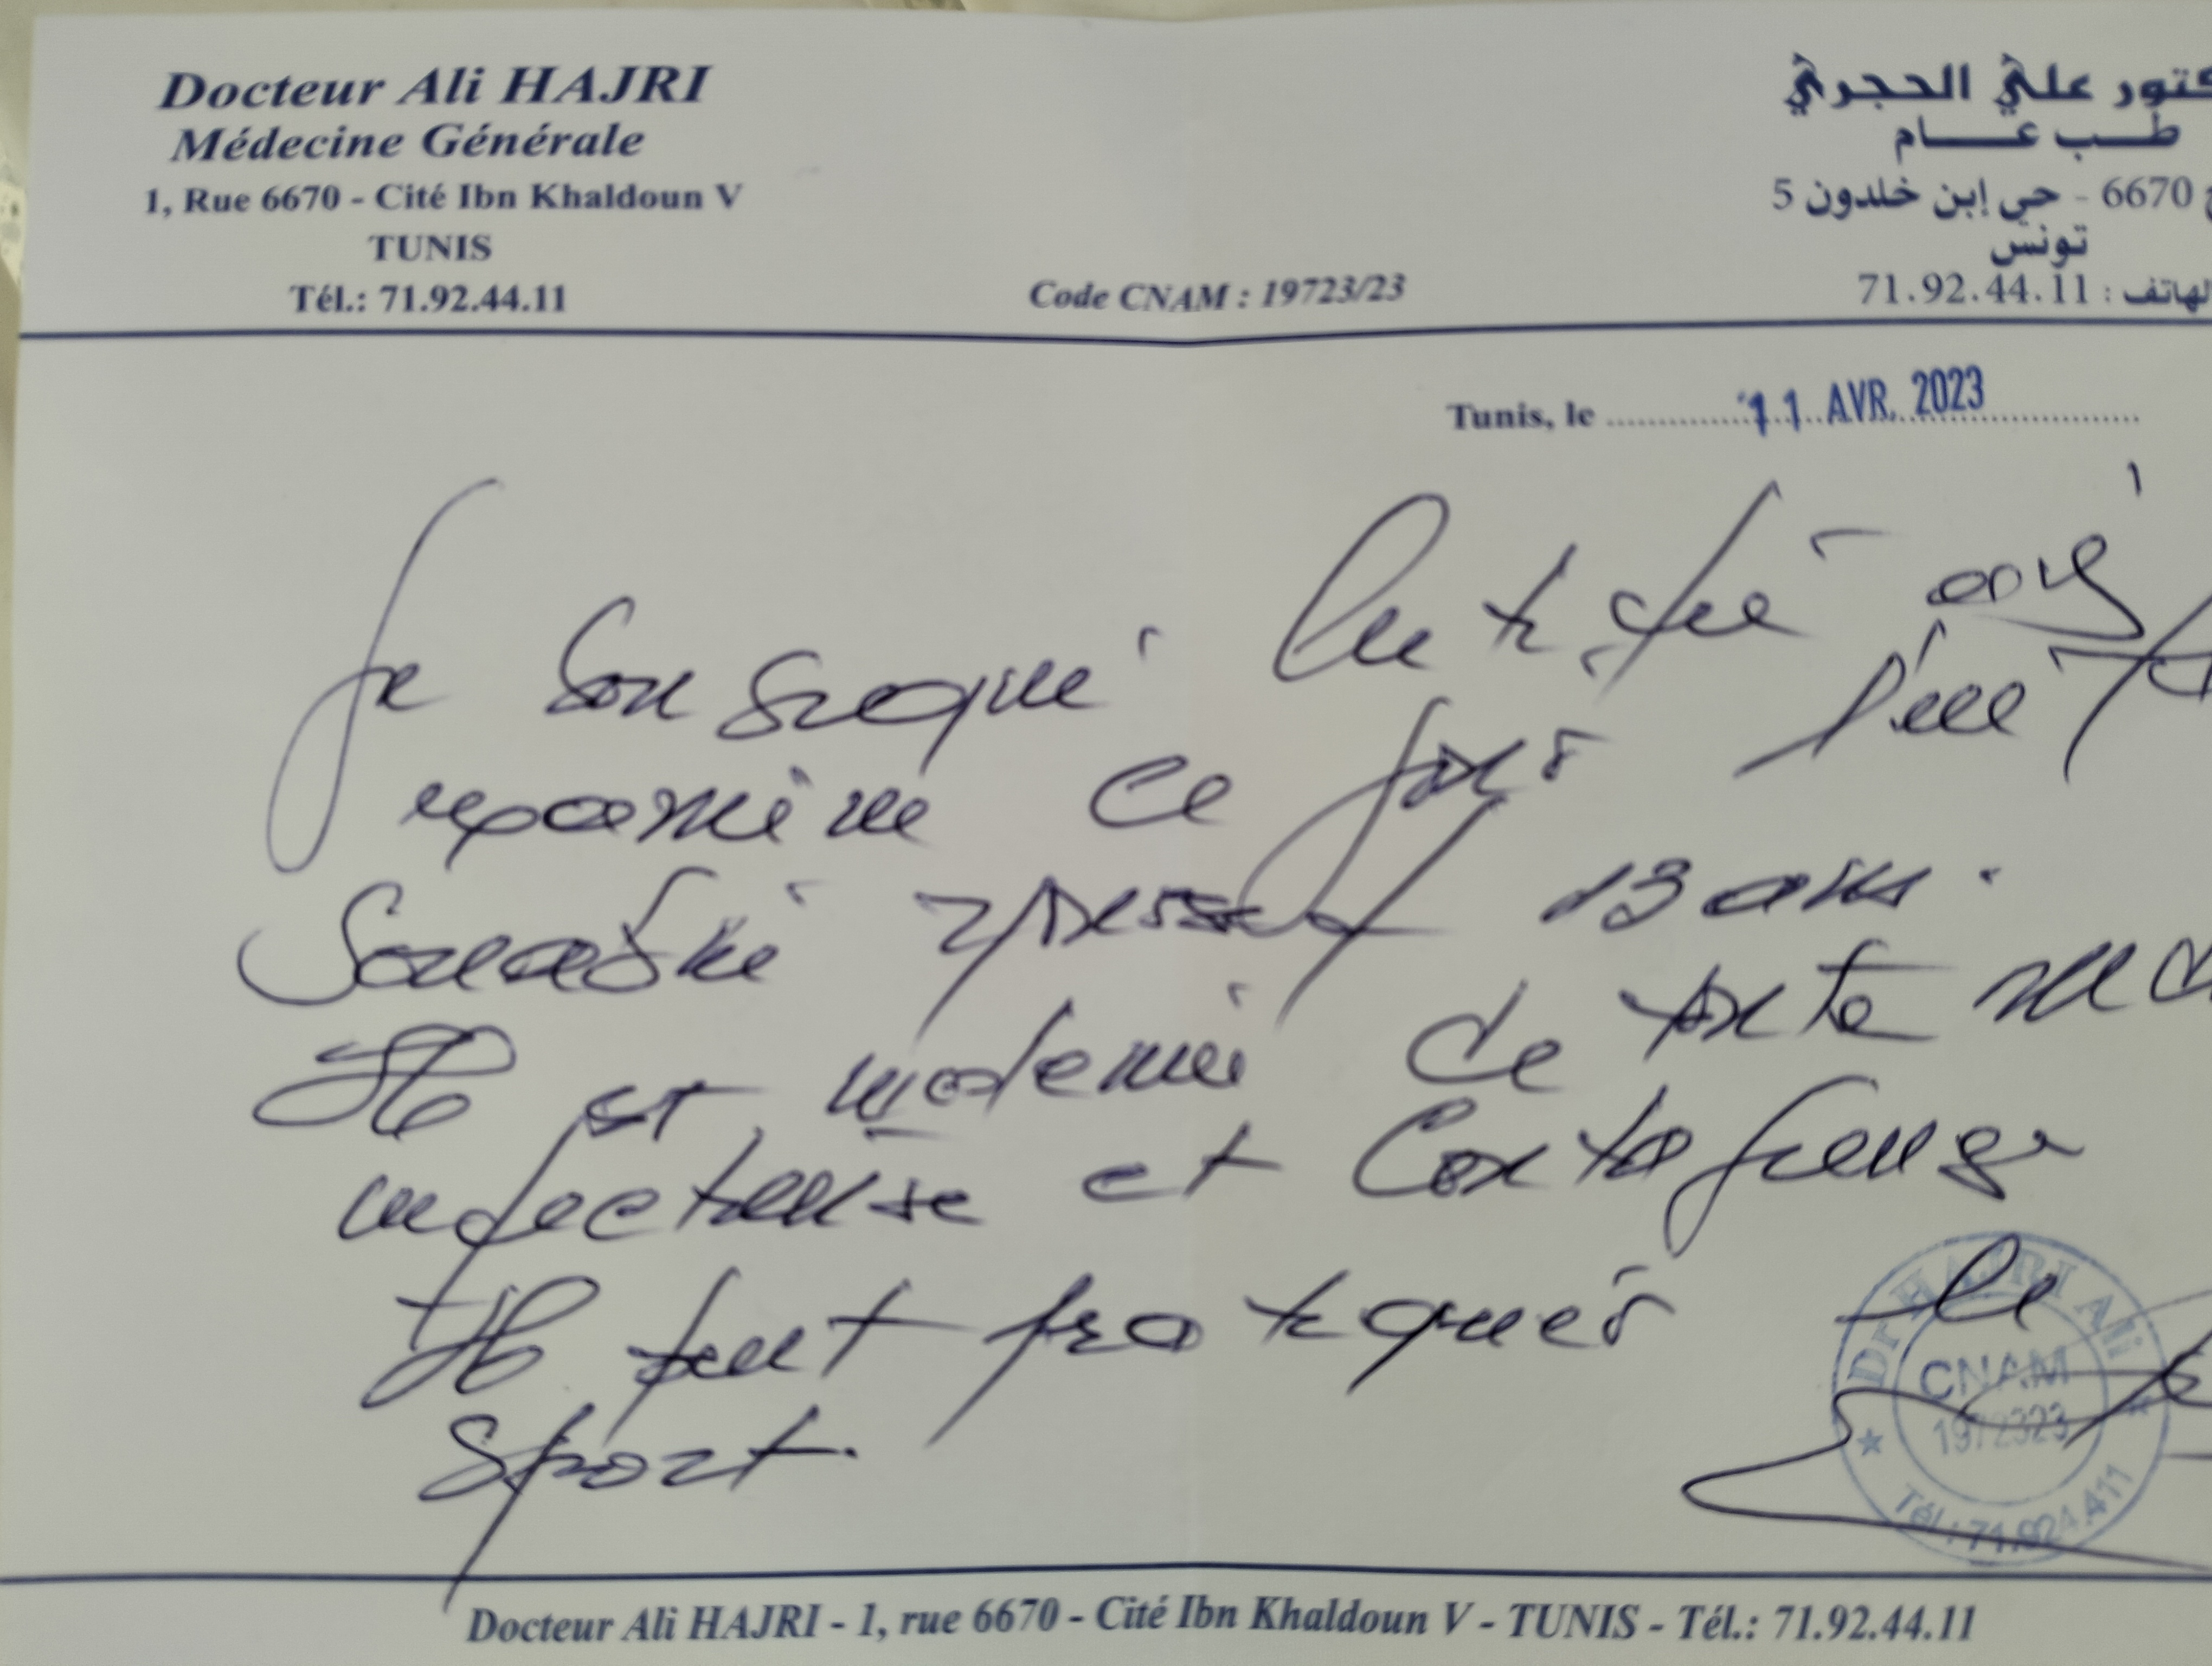 Docteur Ali HAJRI
Médecine Générale
1, Rue 6670 - Cité Ibn Khaldoun V
TUNIS
Tél.: 71.92.44.11
Code CNAM : 19723/23
كتور علي الحجري
طب عام
6670 - حي إبن خلدون 5
تونس
لهاتف : 71.92.44.11
Tunis, le 11 AVR. 2023
Je soussigné certifié avoir
examiné ce jour l'élève
Souadki 13 ans.
Il est indemne de toute
infectieuse et contagieuse
Il peut pratiquer le
sport.
Dr HAJRI Ali
CNAM
1972323
Tél : 71.924.411
Docteur Ali HAJRI - 1, rue 6670 - Cité Ibn Khaldoun V - TUNIS - Tél.: 71.92.44.11